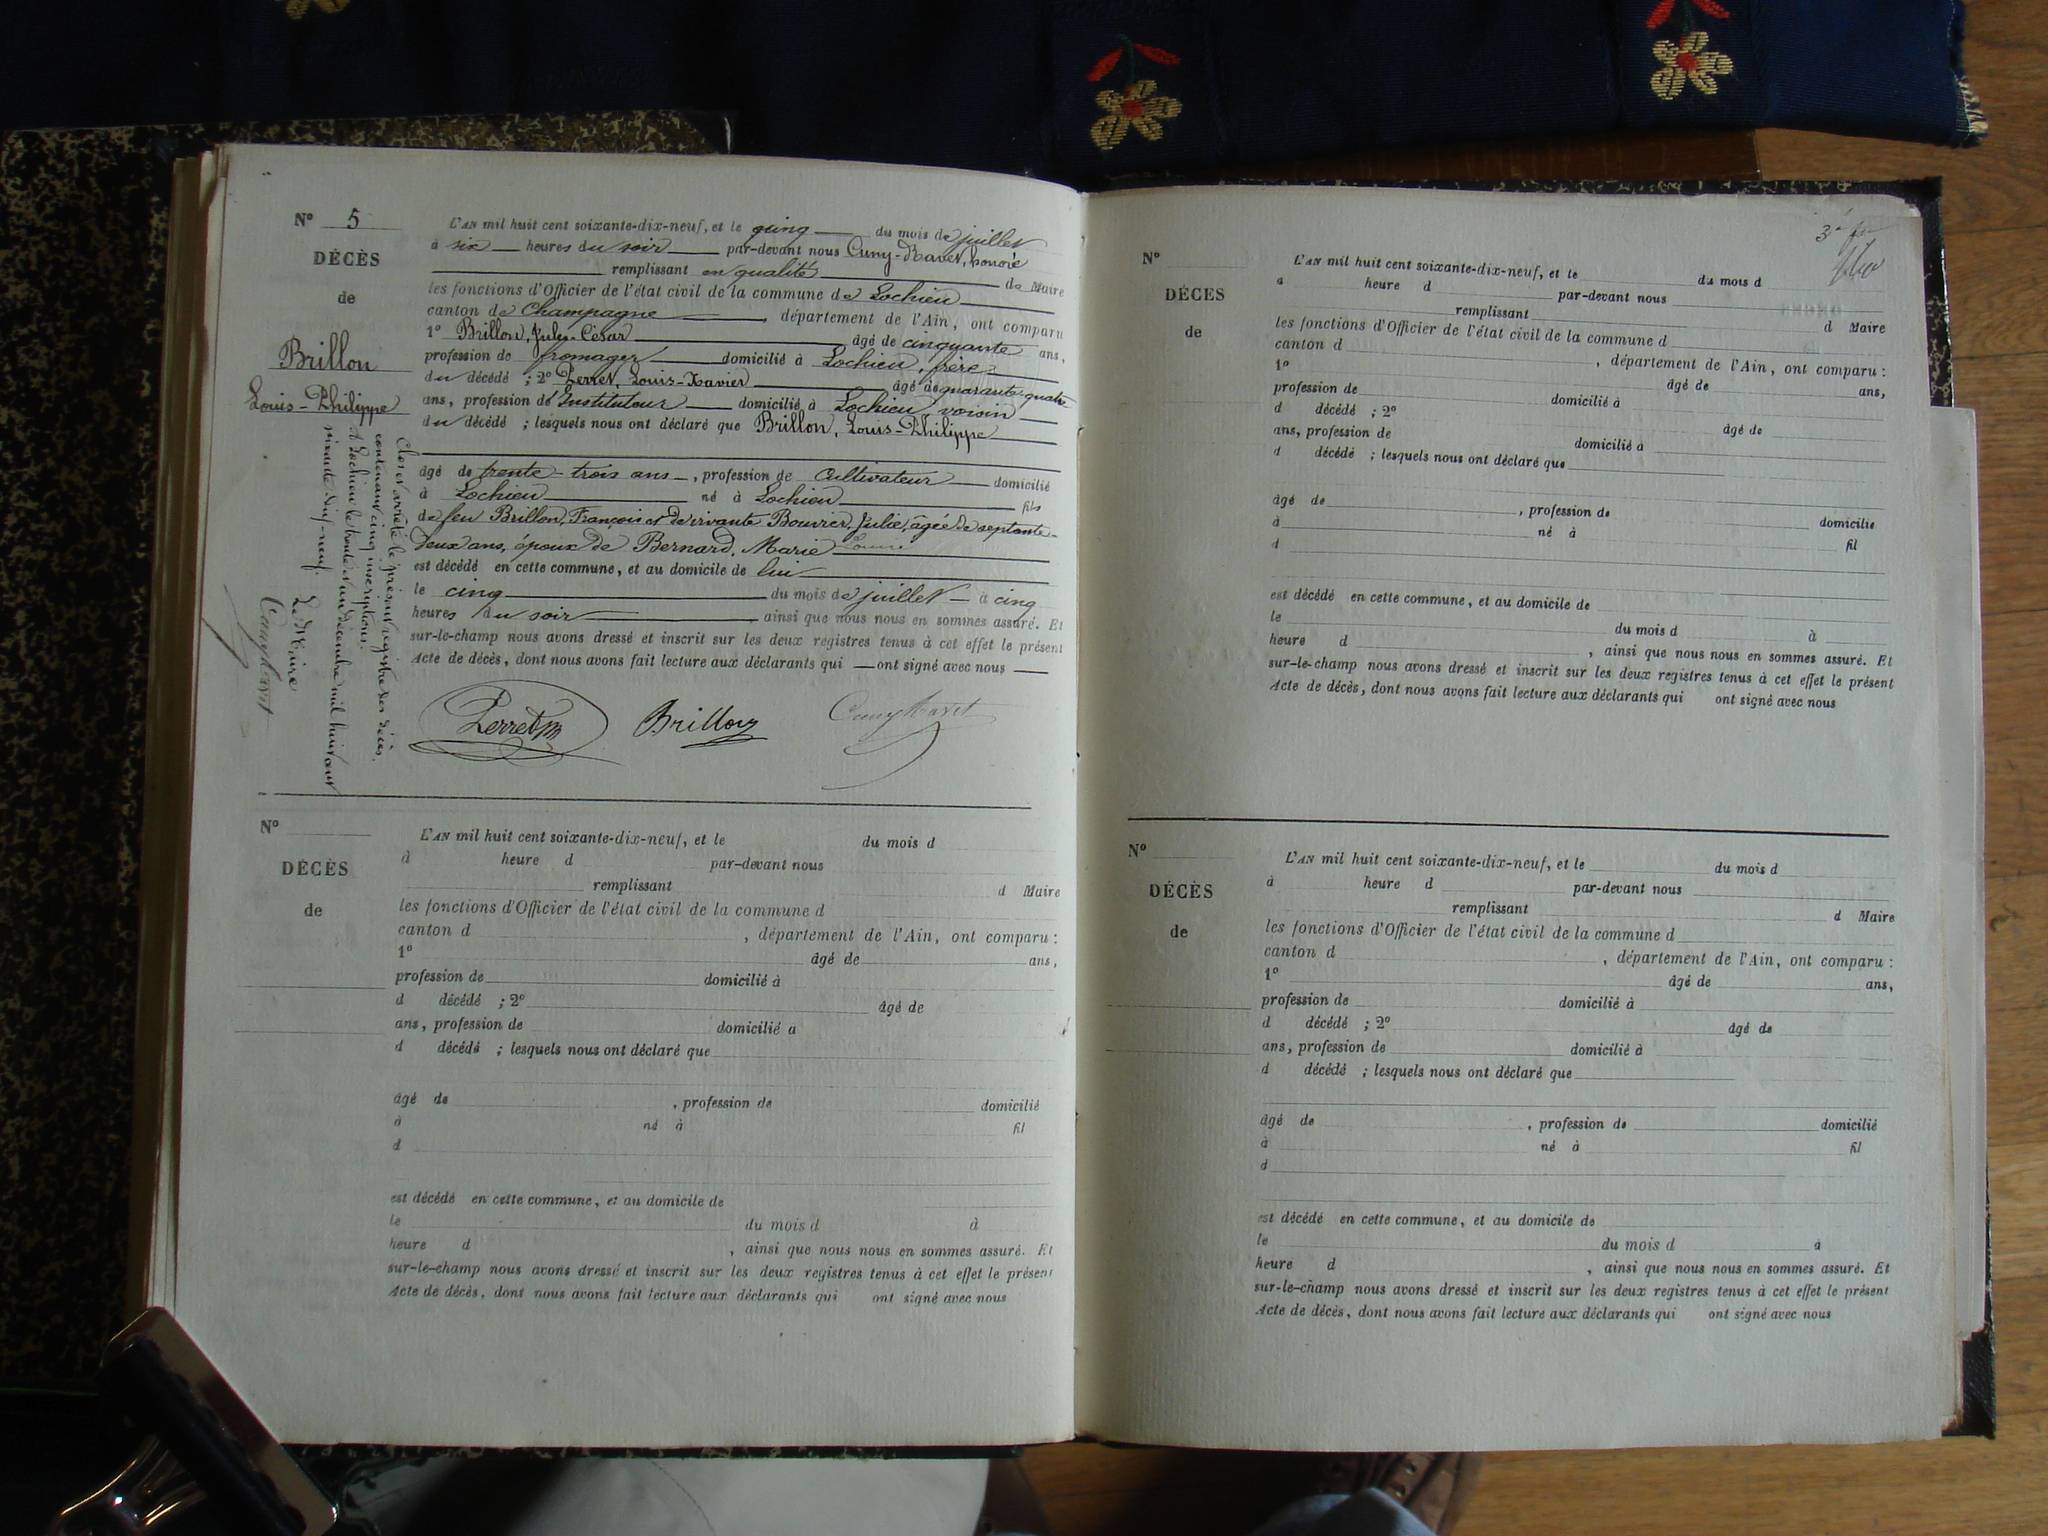 N° 5
DÉCÈS
de
Brillon
Louis-Philippe
L'AN mil huit cent soixante-dix-neuf, et le cinq du mois de juillet
à six heures du soir par-devant nous Cuny-Ravet, honoré
remplissant en qualité de Maire
les fonctions d'Officier de l'état civil de la commune de Lochieu
canton de Champagne, département de l'Ain, ont comparu
1° Brillon, Jules-César âgé de cinquante ans,
profession de fromager domicilié à Lochieu, frère
du décédé ; 2° Perret, Louis-Xavier âgé de quarante-quatre
ans, profession d'Instituteur domicilié à Lochieu, voisin
du décédé ; lesquels nous ont déclaré que Brillon, Louis-Philippe
âgé de trente-trois ans, profession de Cultivateur domicilié
à Lochieu né à Lochieu fils
de feu Brillon, François et de vivante Bouvier, Julie, âgée de septante-
deux ans, époux de Bernard, Marie Louise
est décédé en cette commune, et au domicile de lui
le cinq du mois de juillet à cinq
heures du soir ainsi que nous nous en sommes assuré. Et
sur-le-champ nous avons dressé et inscrit sur les deux registres tenus à cet effet le présent
Acte de décès, dont nous avons fait lecture aux déclarants qui ont signé avec nous
Perret
Brillon
Cuny Ravet
Clos et arrêté le présent registre des décès,
contenant cinq inscriptions.
A Lochieu le trente et un décembre mil huit cent
soixante dix-neuf.
Le Maire
Cuny Ravet
N°
DÉCÈS
de
L'AN mil huit cent soixante-dix-neuf, et le du mois d
à heure d par-devant nous
remplissant d Maire
les fonctions d'Officier de l'état civil de la commune d
canton d , département de l'Ain, ont comparu :
1° âgé de ans,
profession de domicilié à
d décédé ; 2° âgé de
ans, profession de domicilié a
d décédé ; lesquels nous ont déclaré que
âgé de , profession de domicilié
à né à fil
d
est décédé en cette commune, et au domicile de
le du mois d à
heure d , ainsi que nous nous en sommes assuré. Et
sur-le-champ nous avons dressé et inscrit sur les deux registres tenus à cet effet le présent
Acte de décès, dont nous avons fait lecture aux déclarants qui ont signé avec nous
N°
DÉCÈS
de
L'AN mil huit cent soixante-dix-neuf, et le du mois d
a heure d par-devant nous
remplissant d Maire
les fonctions d'Officier de l'état civil de la commune d
canton d , département de l'Ain, ont comparu :
1° âgé de ans,
profession de domicilié à
d décédé ; 2° âgé de
ans, profession de domicilié à
d décédé ; lesquels nous ont déclaré que
âgé de , profession de domicilié
à né à fil
d
est décédé en cette commune, et au domicile de
le du mois d à
heure d , ainsi que nous nous en sommes assuré. Et
sur-le-champ nous avons dressé et inscrit sur les deux registres tenus à cet effet le présent
Acte de décès, dont nous avons fait lecture aux déclarants qui ont signé avec nous
N°
DÉCÈS
de
L'AN mil huit cent soixante-dix-neuf, et le du mois d
à heure d par-devant nous
remplissant d Maire
les fonctions d'Officier de l'état civil de la commune d
canton d , département de l'Ain, ont comparu :
1° âgé de ans,
profession de domicilié à
d décédé ; 2° âgé de
ans, profession de domicilié à
d décédé ; lesquels nous ont déclaré que
âgé de , profession de domicilié
à né à fil
d
est décédé en cette commune, et au domicile de
le du mois d à
heure d , ainsi que nous nous en sommes assuré. Et
sur-le-champ nous avons dressé et inscrit sur les deux registres tenus à cet effet le présent
Acte de décès, dont nous avons fait lecture aux déclarants qui ont signé avec nous